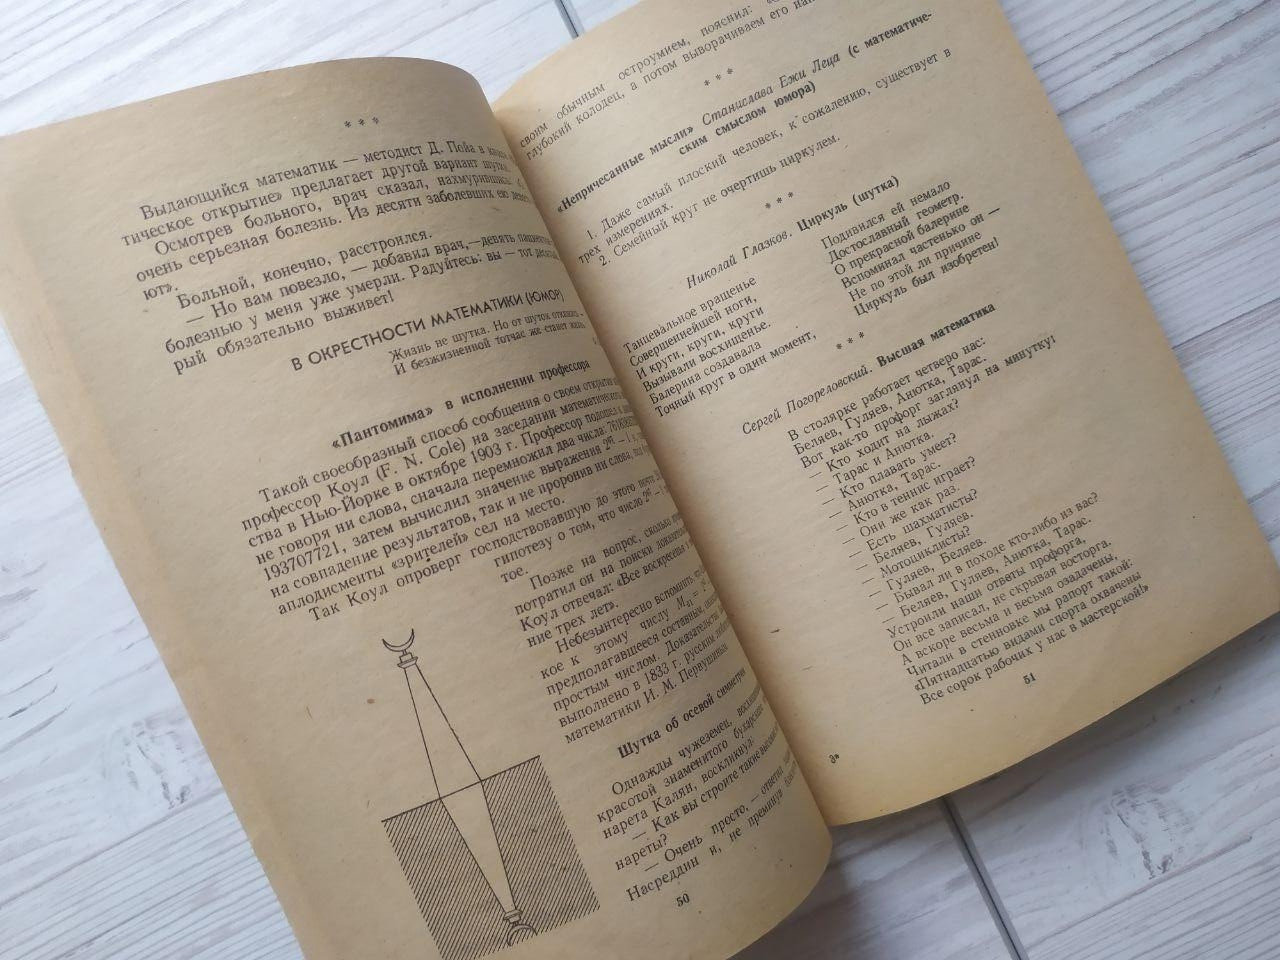 * * *
Выдающийся математик — методист Д. Пойа в
тическое открытие» предлагает другой вариант шутки.
Осмотрев больного, врач сказал, нахмурившись:
очень серьезная болезнь. Из десяти заболевших ею
ют».
Больной, конечно, расстроился.
— Но вам повезло, — добавил врач,— девять пациентов
болезнью у меня уже умерли. Радуйтесь: вы — тот
рый обязательно выживет!
В ОКРЕСТНОСТИ МАТЕМАТИКИ (ЮМОР)
Жизнь не шутка. Но от шуток
И безжизненной тотчас же станет жизнь.
«Пантомима» в исполнении профессора
Такой своеобразный способ сообщения о своем открытии
профессор Коул (F. N. Cole) на заседании математического
ства в Нью-Йорке в октябре 1903 г. Профессор подошел к
не говоря ни слова, сначала перемножил два числа:
193707721, затем вычислил значение выражения
на совпадение результатов, так и не проронив ни слова, под
аплодисменты «зрителей» сел на место.
Так Коул опроверг господствовавшую до этого почти
гипотезу о том, что число
тое.
Позже на вопрос, сколько
потратил он на поиски
Коул отвечал: «Все воскресенья в
ние трех лет».
Небезынтересно вспомнить,
кое к этому числу
предполагавшееся составным,
простым числом. Доказательство
выполнено в 1833 г. русским
математики И. М. Первушиным
Шутка об осевой симметрии
Однажды чужеземец,
красотой знаменитого бухарского
нарета Калян, воскликнул:
— Как вы строите такие высокие
нареты?
— Очень просто, — ответил
Насреддин и, не преминув
50
своим обычным остроумием, пояснил:
глубокий колодец, а потом выворачиваем его
* * *
«Непричесанные мысли» Станислава Ежи Леца (с математиче-
ским смыслом юмора)
1. Даже самый плоский человек, к сожалению, существует в
трех измерениях.
2. Семейный круг не очертишь циркулем.
* * *
Николай Глазков. Циркуль (шутка)
Танцевальное вращенье
Совершеннейшей ноги,
И круги, круги, круги
Вызывали восхищенье.
Балерина создавала
Точный круг в один момент,
Подивился ей немало
Достославный геометр.
О прекрасной балерине
Вспоминал частенько он —
Не по этой ли причине
Циркуль был изобретен!
* * *
Сергей Погореловский. Высшая математика
В столярке работает четверо нас:
Беляев, Гуляев, Анютка, Тарас.
Вот как-то профорг заглянул на минутку:
— Кто ходит на лыжах?
— Тарас и Анютка.
— Кто плавать умеет?
— Анютка, Тарас.
— Кто в теннис играет?
— Они же как раз.
— Есть шахматисты?
— Беляев, Гуляев.
— Мотоциклисты?
— Гуляев, Беляев.
— Бывал ли в походе кто-либо из вас?
— Беляев, Гуляев, Анютка, Тарас.
Устроили наши ответы профорга,
Он все записал, не скрывая восторга,
А вскоре весьма и весьма озадачены,
Читали в стенновке мы рапорт такой:
«Пятнадцатью видами спорта охвачены
Все сорок рабочих у нас в мастерской!»
3*
51